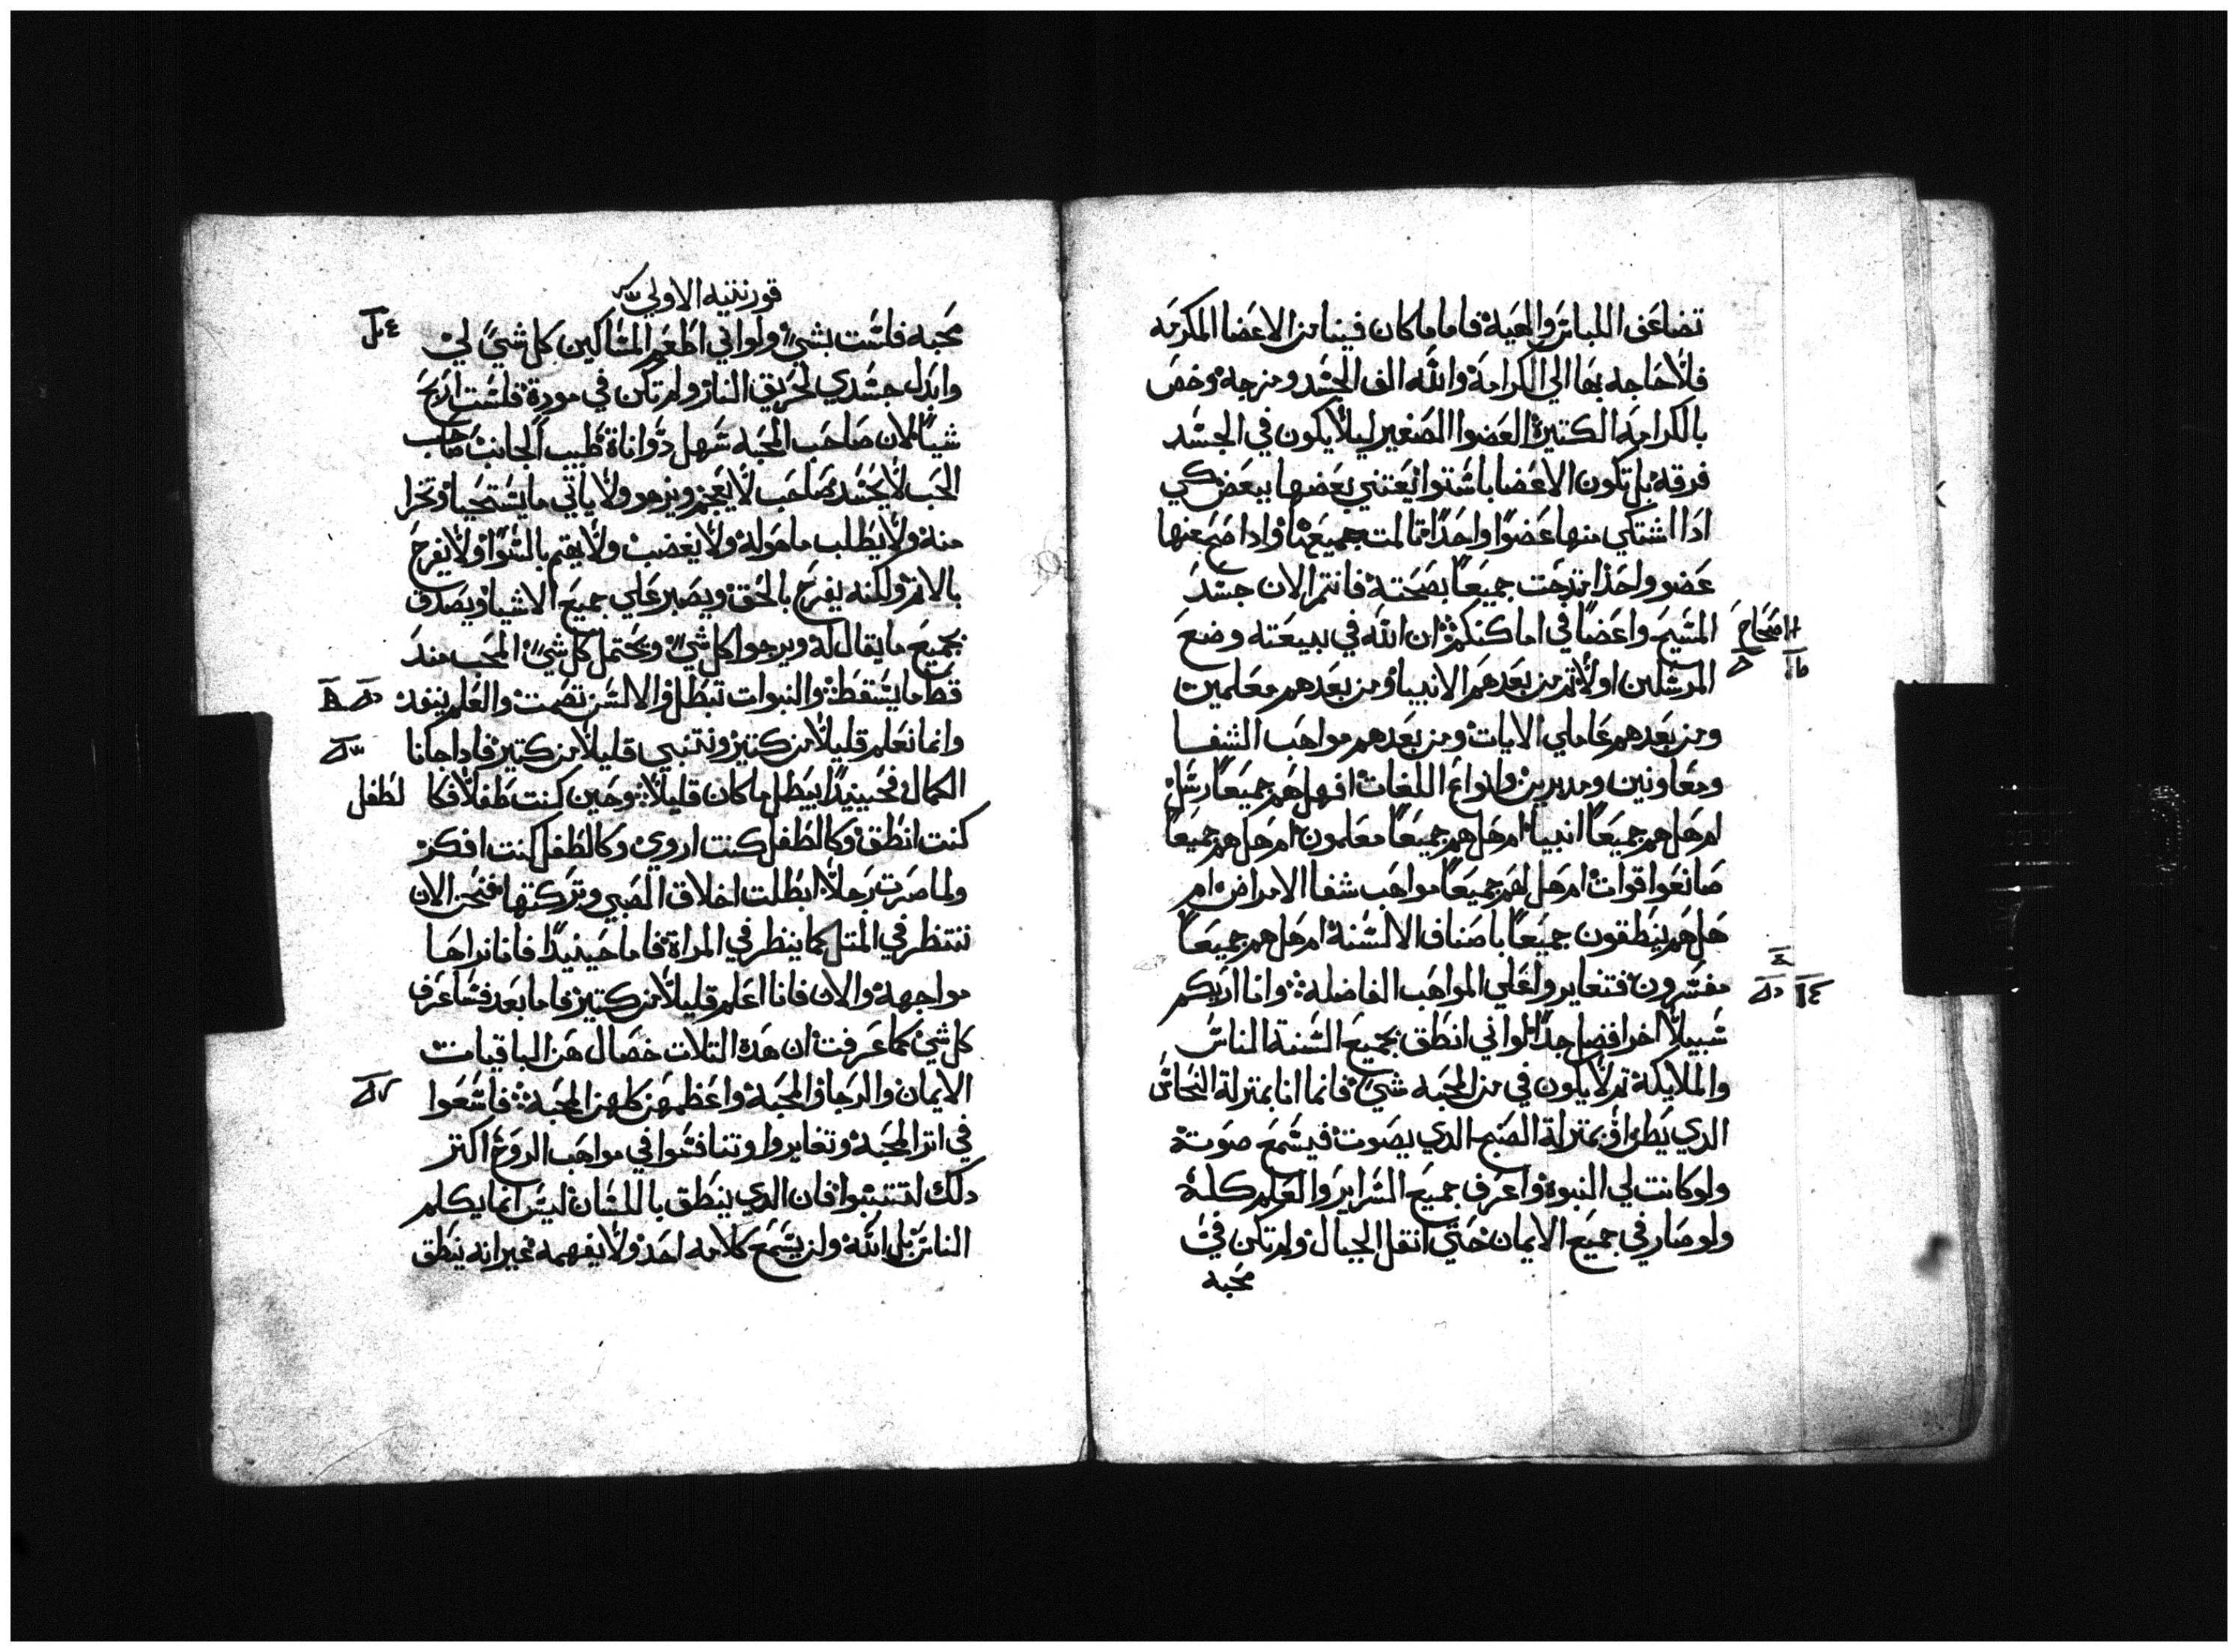 تضاعف اللباس والهية فاما ما كان فينا من الاعضا المكرمه
فلا حاجه بها الي الكرامة والله الف الجسد ومزجه وخص
بالكرامه الكتيرة العضوا الصغير ليلا يكون في الجسد
فرقه بل تكون الاعضا باستوا يعتني بعضها ببعض كي
ادا اشتكي منها عضوا واحدا تالمت جميعها وادا صح منها
عضو واحد ابتدجت جميعا بصحته فانتم الان جسد
المسيح واعضا في اماكنكم ان الله في بيعته وضع
اصحاح
المرسلين اولا تم من بعدهم الانبيا ومن بعدهم معلمين
ومن بعدهم عاملي الايات ومن بعدهم مواهب الشفا
ومعاونين ومدبرين وانواع اللغات افهل هم جميعا رسل
ام هل هم جميعا انبيا ام هل هم جميعا معلمون ام هل هم جميعا
صانعوا قوات ام هل لهم جميعا مواهب شفا الامراض ام
هل هم ينطقون جميعا باصناف الالسنة ام هل هم جميعا
مفسرون فتغايروا علي المواهب الفاضله وانا اريكم
سبيلا اخر افضل جدا لواني انطق بجميع السنة الناس
والملايكة تم لا يكون في من المحبه شي فانما انا بمنزلة النحاس
الدي يطن او بمنزلة الصنج الدي يصوت فيسمع صوته
ولو كانت لي النبوة واعرف جميع السراير والعلم كله
ولو صار في جميع الايمان حتي انقل الجبال ولم تكن في
محبه
قورنتيه الاولي
محبه فلست بشي ولو اني اطعم المساكين كل شي لي
وابدل جسدي لحريق النار ولم تكن في مودة فلست اربح
شيا لان صاحب المحبه سهل دو اناة طيب الجانب صاحب
الحب لا يحسد صاحب لا يعجز ويزهو ولا ياتي ما يستحيا وتخزا
منه ولا يطلب ما هو له ولا يغضب ولا يهتم بالسوا ولا يفرح
بالاتم ولكنه يفرح بالحق ويصبر علي جميع الاشيا ويصدق
بجميع ما يقال له ويرجوا كل شي ويحتمل كل شي المحب مند
قط ما يسقط والنبوات تبطل والالسن تصمت والعلم ينفد
وانما نعلم قليلا من كتير ونتنبي قليلا من كتير فادا جانا
الكمال فحينيدا يبطل ما كان قليلا وحين كنت طفلا فكا لطفل
كنت انطق وكالطفل كنت اروي وكالطفل كنت افكر
ولما صرت رجلا ابطلت اخلاق الصبي وتركتها فنحن الان
ننتظر في المتل كما ينظر في المراة فاما حينيدا فانا نراها
مواجهة والان فانا اعلم قليلا من كتير فاما بعد فساعرف
كل شي كما عرفت ان هده التلات خصال هن الباقيات
الايمان والرجا والمحبة واعظمهن كلهن المحبة فاسعوا
في اتر المحبة وتغايروا وتنافسوا في مواهب الروح اكتر
دلك لتتنبوا فان الدي ينطق باللسان ليس انما يكلم
الناس بل الله ولن يسمع كلامه احد ولا يفهمه غير انه ينطق